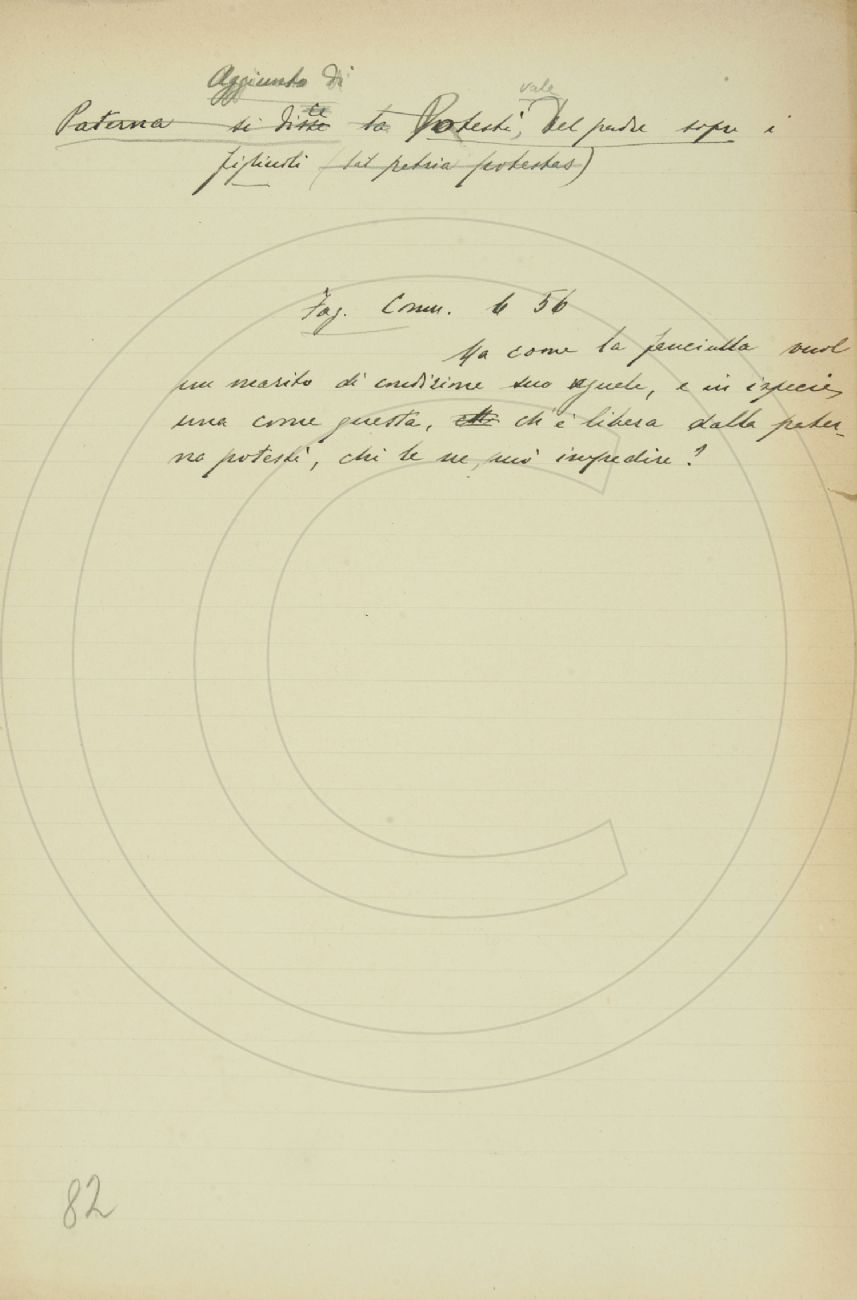 Aggiunto di
vale
Paterna si disse ce la Potestà, del padre sopra i
figliuoli (lat patria potestas)
Fag. Comm. 6 56
Ma come la fanciulla vuol
un marito di condizione suo eguale, e in ispecie
una come questa, ch'è libera dalla pater-
na potestà, chi le ne può impedire?
82